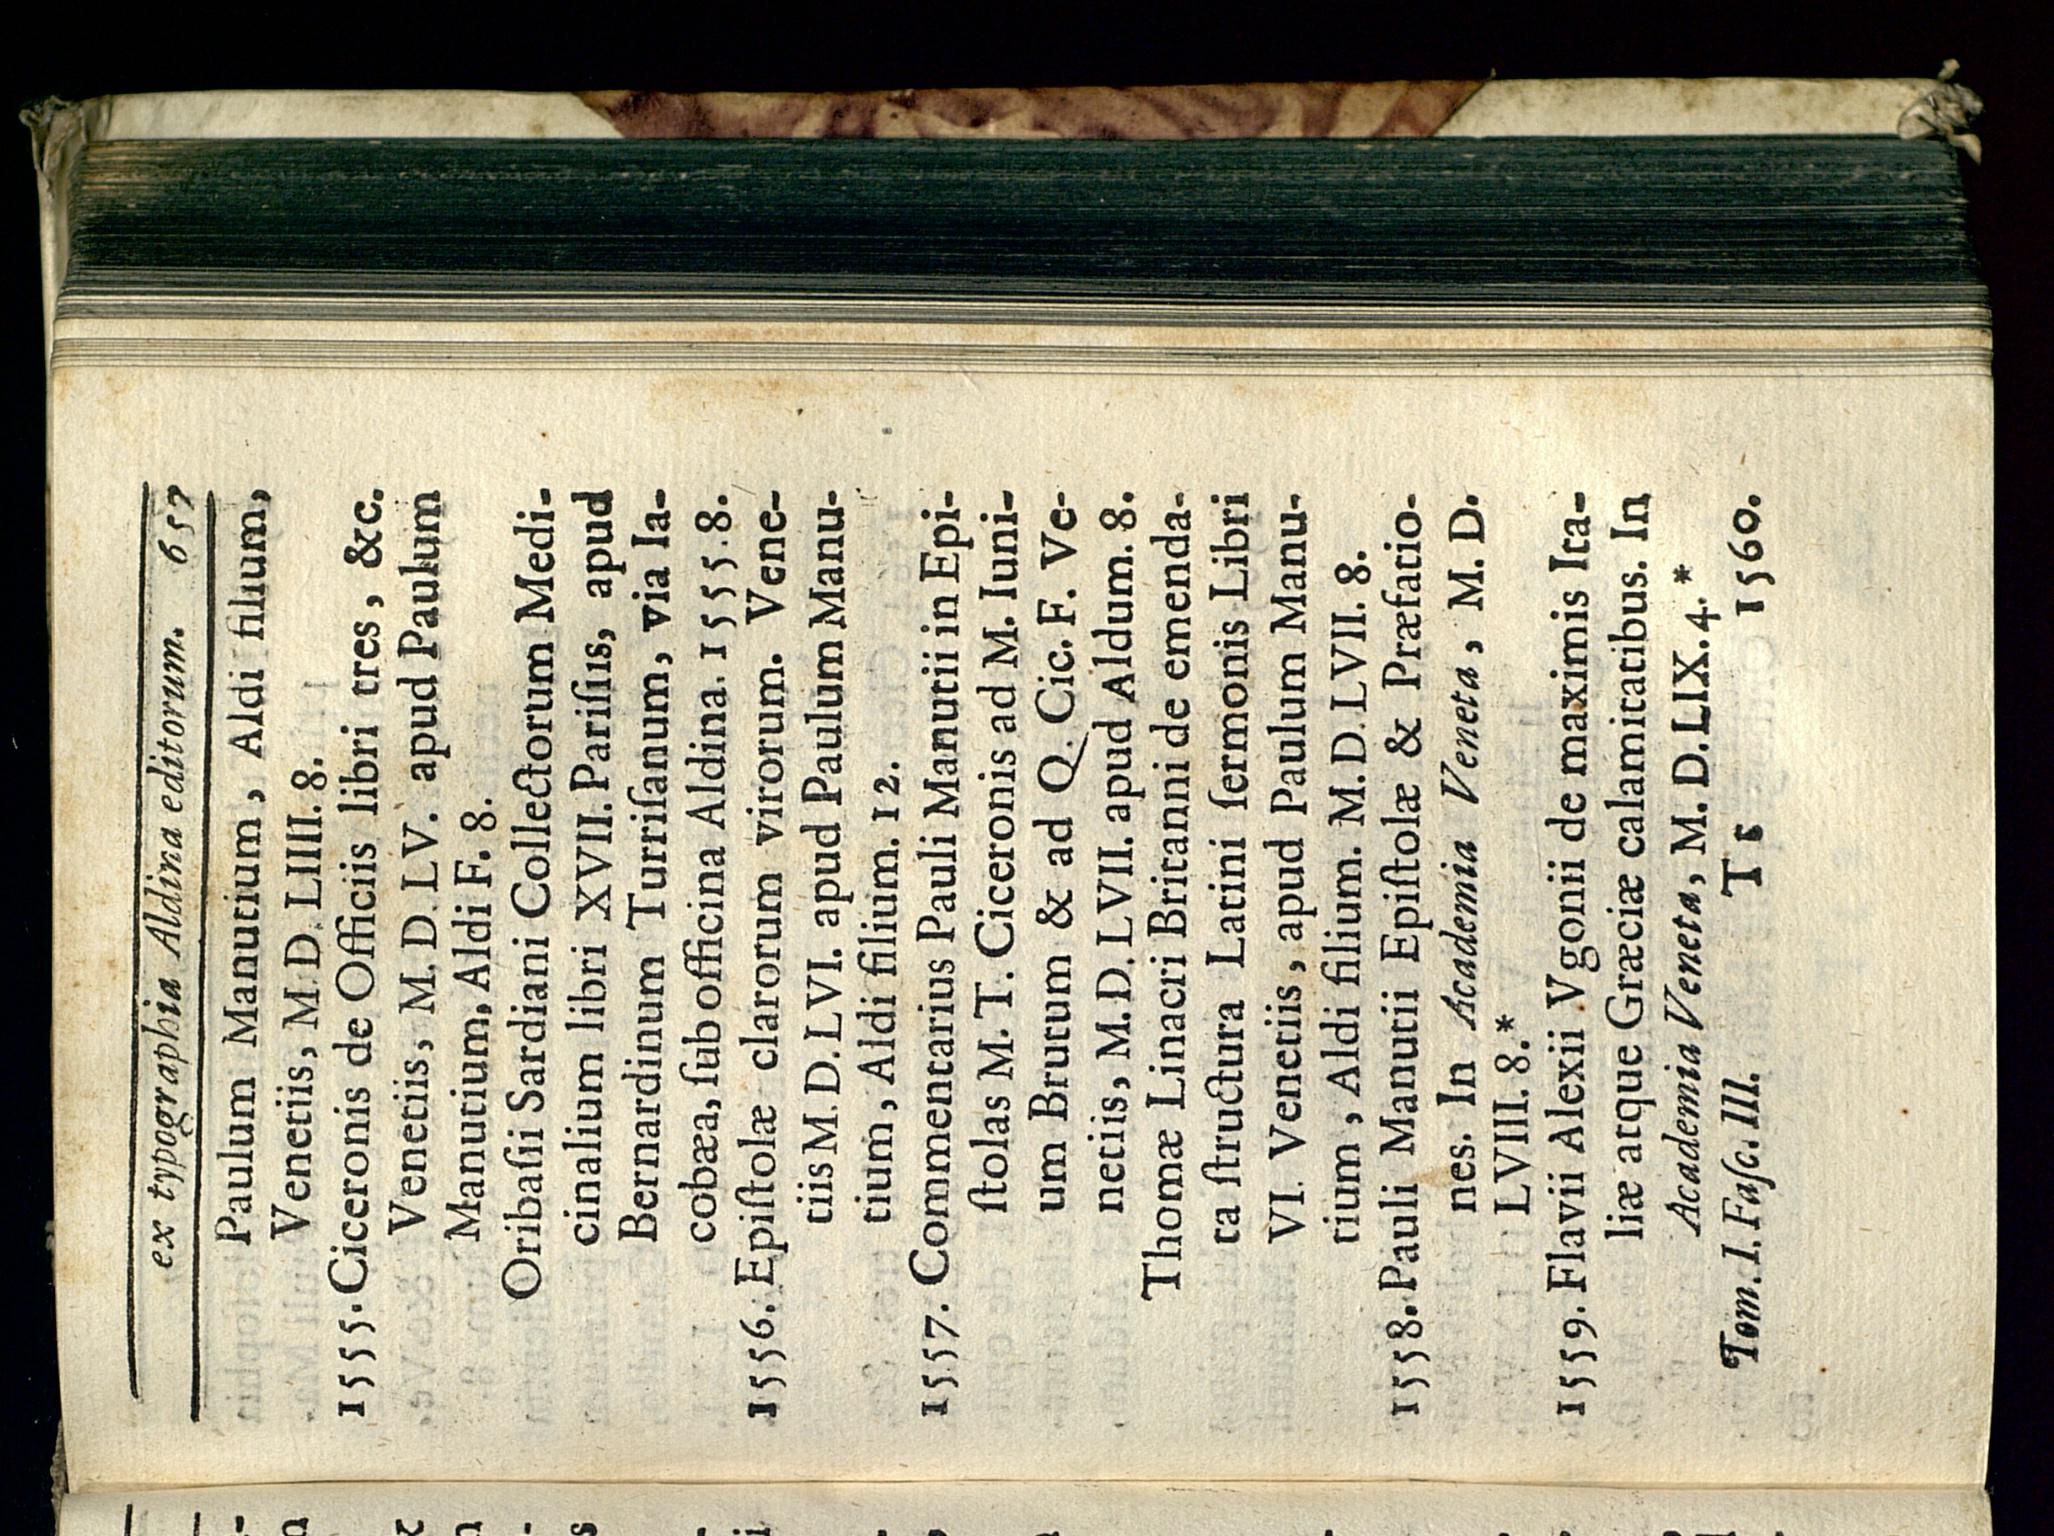 ex typographia Aldina editorum. 657
Paulum Manutium, Aldi filium,
Venetiis, M. D. LIIII. 8.
1555. Ciceronis de Officiis libri tres, &c.
Venetiis, M. D. LV. apud Paulum
Manutium, Aldi F. 8.
Oribaſii Sardiani Collectorum Medi-
cinalium libri XVII. Pariſiis, apud
Bernardinum Turriſanum, via Ia-
cobæa, ſub officina Aldina. 1555. 8.
1556. Epiſtolæ clarorum virorum. Vene-
tiis M. D. LVI. apud Paulum Manu-
tium, Aldi filium. 12.
1557. Commentarius Pauli Manutii in Epi-
ſtolas M. T. Ciceronis ad M. Iuni-
um Brutum & ad Q. Cic. F. Ve-
netiis, M. D. LVII. apud Aldum. 8.
Thomæ Linacri Britanni de emenda-
ta ſtructura Latini ſermonis Libri
VI. Venetiis, apud Paulum Manu-
tium, Aldi filium. M. D. LVII. 8.
1558. Pauli Manutii Epiſtolæ & Præfatio-
nes. In Academia Veneta, M. D.
LVIII. 8.*
1559. Flavii Alexii Vgonii de maximis Ita-
liæ atque Græciæ calamitatibus. In
Academia Veneta, M. D. LIX. 4.*
Tom. I. Faſc. III. T t 1560.